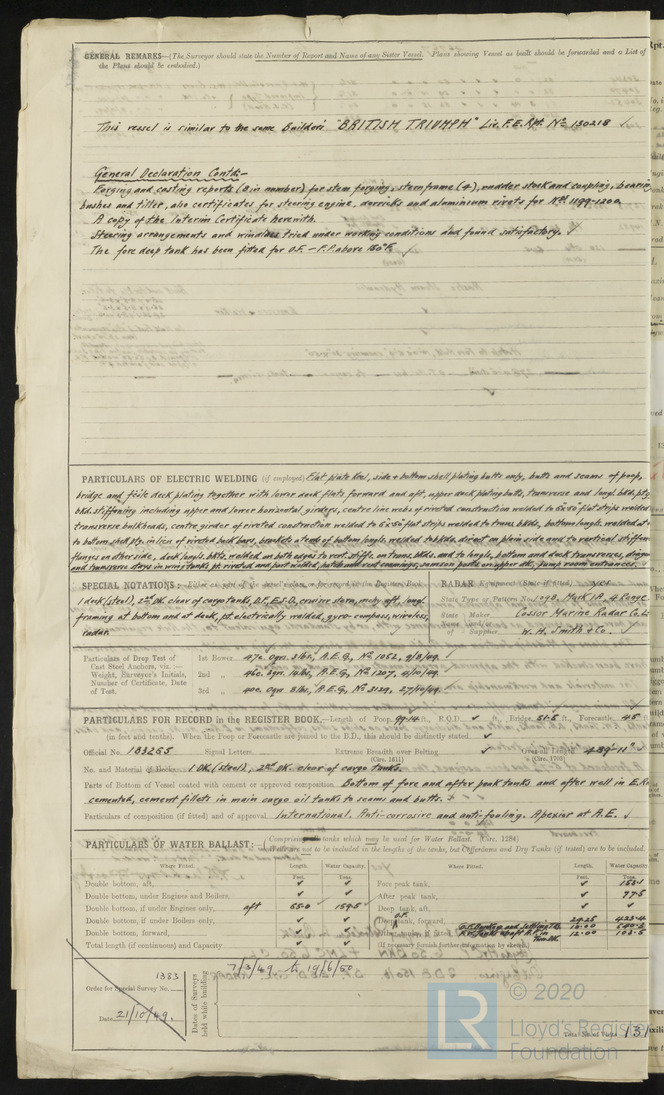 GENERAL REMARKS—(The Surveyor should state the Number of Report and Name of any Sister Vessel. Plans showing Vessel as built should be forwarded and a List of
the Plans should be embodied.)
This vessel is similar to the same Builders "BRITISH TRIUMPH" Liv. F.E. Rpt. No 130218 ✓
General Declaration Contd:-
Forging and casting reports (8 in number) for stem forging, sternframe (4), rudder stock and coupling, bearing
bushes and tiller, also certificates for steering engine, derricks and aluminium rivets for Nos 1199-1200.
A copy of the Interim Certificate herewith.
Steering arrangements and windlass tried under working conditions and found satisfactory. ✓
The fore deep tank has been fitted for O.F. – F.P. above 150°F. ✓
PARTICULARS OF ELECTRIC WELDING (if employed) Flat plate keel, side & bottom shell plating butts only, butts and seams of poop,
bridge and fo'sle deck plating together with lower deck flats forward and aft, upper deck plating butts, transverse and longl. bkd. ptg.
bkd. stiffening including upper and lower horizontal girders, centre line webs of riveted construction welded to 6x.50 flat strips welded
transverse bulkheads, centre girder of riveted construction welded to 6x.50 flat strips welded to trans. bkhds, bottom longls. welded at
to bottom shell ptg. in lieu of riveted back bars, brackets at ends of bottom longls. welded to bkhds. direct on plain side and to vertical stiffen
flanges on other side, deck longls. bkts. welded on both edges to vert. stiffs. on trans. bkhds. and to longls, bottom and deck transverses,
and transverse stays in wing tanks pt. riveted and part welded, hatch and coamings, samson posts on upper dk, pump room entrances. ✓
SPECIAL NOTATIONS:—
1 deck (steel), 2nd Dk. clear of cargo tanks, D.F., E.S.D., cruiser stern, mchy. aft, longl.
framing at bottom and at deck, pt. electrically welded, gyro-compass, wireless,
radar.
RADAR Equipment yes
State Type or Pattern No. 1098. Mark 1A. 4 Range.
State Maker Cossor Marine Radar Co. L
Supplier W. H. Smith & Co. ✓
Particulars of Drop Test of
Cast Steel Anchors, viz.:—
Weight, Surveyor's Initials,
Number of Certificate, Date
of Test.
1st Bower 47c. 0qrs. 3lbs, A.E.G., No 1052, 9/8/49.
2nd „ 46c. 3qrs. 14lbs, A.E.G., No 1207, 4/10/49.
3rd „ 40c. 0qrs. 8lbs, A.E.G., No 3129, 27/10/49.
PARTICULARS FOR RECORD in the REGISTER BOOK.—Length of Poop 99.14 ft., R.Q.D. ✓ ft., Bridge 51.5 ft., Forecastle 45
(in feet and tenths). When the Poop or Forecastle are joined to the B.D., this should be distinctly stated. ✓
Official No. 183255 Signal Letters Extreme Breadth over Belting ✓ Overall Length 489'-11" ✓
(Circ. 1611) (Circ. 1703)
No. and Material of Decks 1 Dk. (steel), 2nd Dk. clear of cargo tanks.
Parts of Bottom of Vessel coated with cement or approved composition. Bottom of fore and after peak tanks and after well in E.R.
cemented, cement fillets in main cargo oil tanks to seams and butts.
Particulars of composition (if fitted) and of approval. International. Anti-corrosive and anti-fouling. Apexior at A.E. ✓
PARTICULARS OF WATER BALLAST: (Comprising tanks which may be used for Water Ballast. (Circ. 1284)
Wells are not to be included in the lengths of the tanks, but Cofferdams and Dry Tanks (if tested) are to be included.
Where Fitted. Length. Water Capacity. Where Fitted. Length. Water Capacity
Feet. Tons. Feet. Tons.
Double bottom, aft, ✓ ✓ Fore peak tank, ✓ 153.1
Double bottom, under Engines and Boilers, ✓ ✓ After peak tank, ✓ 77.5
Double bottom, if under Engines only, aft 65.0 159.5 Deep tank, aft, ✓ ✓
Double bottom, if under Boilers only, ✓ ✓ Deep O.F. tank, forward, 24.25 423.4
Double bottom, forward, ✓ ✓ 10.00 540.5
12.00 103.5
Total length (if continuous) and Capacity ✓ ✓ (If necessary furnish further information by sketch.)
Order for Special Survey No. 1383
Date 21/10/49.
Dates of Surveys held while building
7/3/49 to 19/6/50
Total No. of Visits 131
© 2020
LR
Lloyd's Register
Foundation